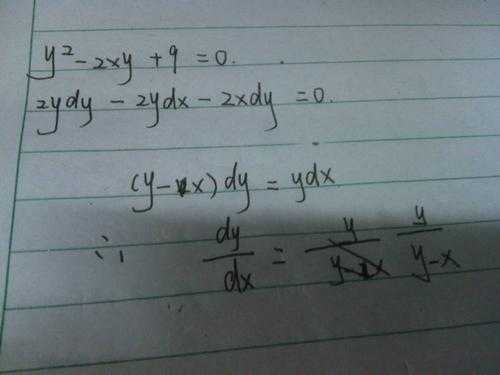 y² - 2xy + 9 = 0.
2ydy - 2ydx - 2xdy = 0.
(y - x) dy = ydx
∴ dy/dx = y/(y - x)